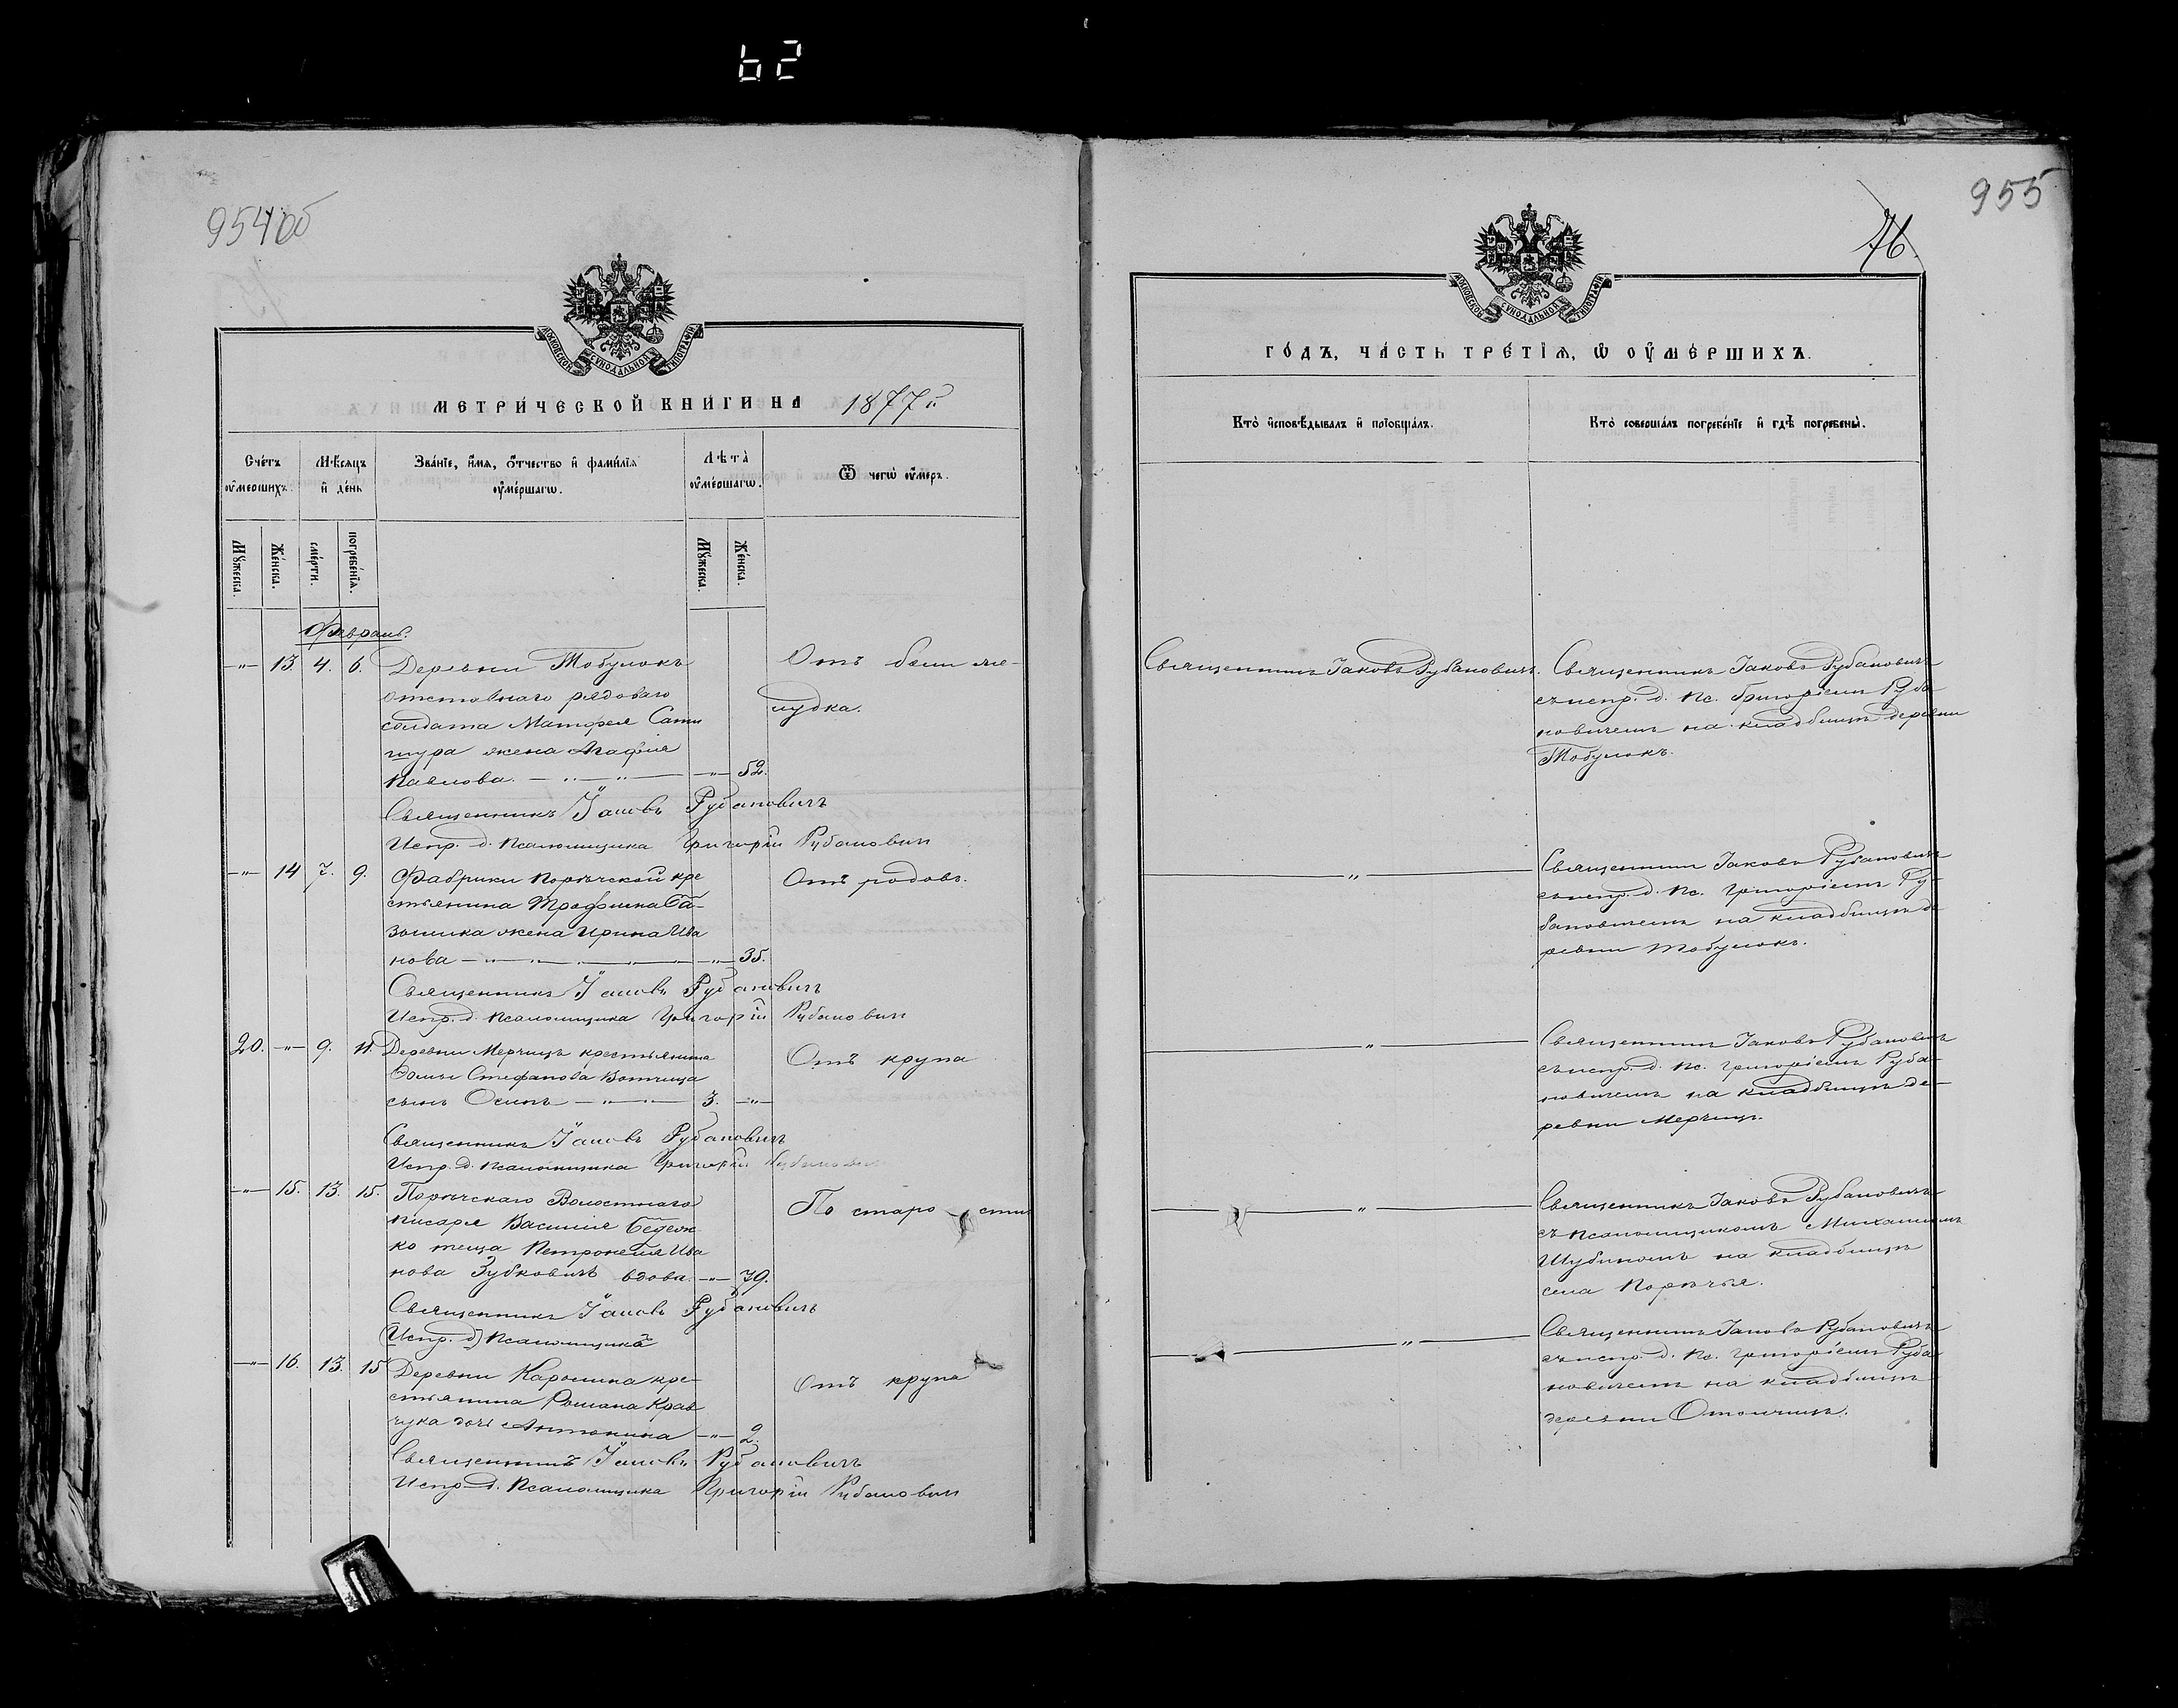 62
954 об
955
76.
МОСКОВСКОЙ СѴНОДАЛЬНОЙ ТИПОГРАФІИ
МЕТРИ́ЧЕСКОЙ КНИ́ГИ НА 1877 г.
Сче́тъ оу҆ме́ршихъ.
Мѣ́сяцъ и҆ де́нь
Зва́нїе, и҆́мѧ, ѻ҆́тчество и҆ фами́лїѧ оу҆ме́ршагѡ.
Лѣ́та̀ оу҆ме́ршагѡ.
Ѿ чегѡ̀ оу҆́меръ.
Мꙋ́жеска.
Же́нска.
сме́рти.
погребе́нїѧ.
Мꙋ́жеска.
Же́нска.
Февраль.
—"— 13. 4. 6. Деревни Тобулокъ
отставнаго рядоваго
солдата Матфея Сати
шура жена Агафія
Павлова. —"— 52.
Отъ боли же-
лудка.
Священникъ Іаковъ Рубановичъ
Испр. д. псаломщика Григорій Рубанович
—"— 14 7. 9. Фабрики Порѣчской кре
стьянина Трофима
жена Ирина Ива
нова —"— 35.
Отъ родовъ.
Священникъ Іаковъ Рубановичъ
Испр. д. псаломщика Григорій Рубанович
20. —"— 9. 11. Деревни Мерчицъ крестьянина
Ѳомы Стефанова Вотчица
сынъ Осипъ —"— 3. —"—
Отъ крупа
Священникъ Іаковъ Рубановичъ
Испр. д. псаломщика Григорій Рубанович
—"— 15. 13. 15. Порѣчскаго Волостнаго
писаря Василія
ко теща Петронеля Ива
нова Зубковичъ вдова. —"— 79.
По старости
Священникъ Іаковъ Рубановичъ
(Испр. д.) псаломщика
—"— 16. 13. 15 Деревни Каролина кре-
стьянина Романа Крав
чука дочь Антонина —"— 2.
Отъ крупа
Священникъ Іаковъ Рубановичъ
Испр. д. псаломщика Григорій Рубанович
МОСКОВСКОЙ СѴНОДАЛЬНОЙ ТИПОГРАФІИ
ГО́ДЪ, ЧА́СТЬ ТРЕ́ТІѦ, Ѡ҆ ОУ҆МЕ́РШИХЪ.
Кто̀ и҆сповѣ́дывалъ и҆ прїѡбща́лъ.
Кто̀ соверша́лъ погребе́нїе и҆ гдѣ̀ погребены̀.
Священникъ Іаковъ Рубановичъ.
Священникъ Іаковъ Рубановичъ
съ испр. д. пс. Григоріемъ Руба-
новичемъ на кладбищѣ деревни
Тобулокъ.
—"—
Священникъ Іаковъ Рубановичъ
съ испр. д. пс. Григоріемъ Ру-
бановичемъ на кладбищѣ де
ревни Тобулокъ.
—"—
Священникъ Іаковъ Рубановичъ
съ испр. д. пс. Григоріемъ Руба-
новичемъ на кладбищѣ де-
ревни Мерчицъ.
—"—
Священникъ Іаковъ Рубановичъ
съ псаломщикомъ Михаиломъ
Шубиномъ на кладбищѣ
села Порѣчья.
—"—
Священникъ Іаковъ Рубановичъ
съ испр. д. пс. Григоріемъ Руба-
новичемъ на кладбищѣ
деревни